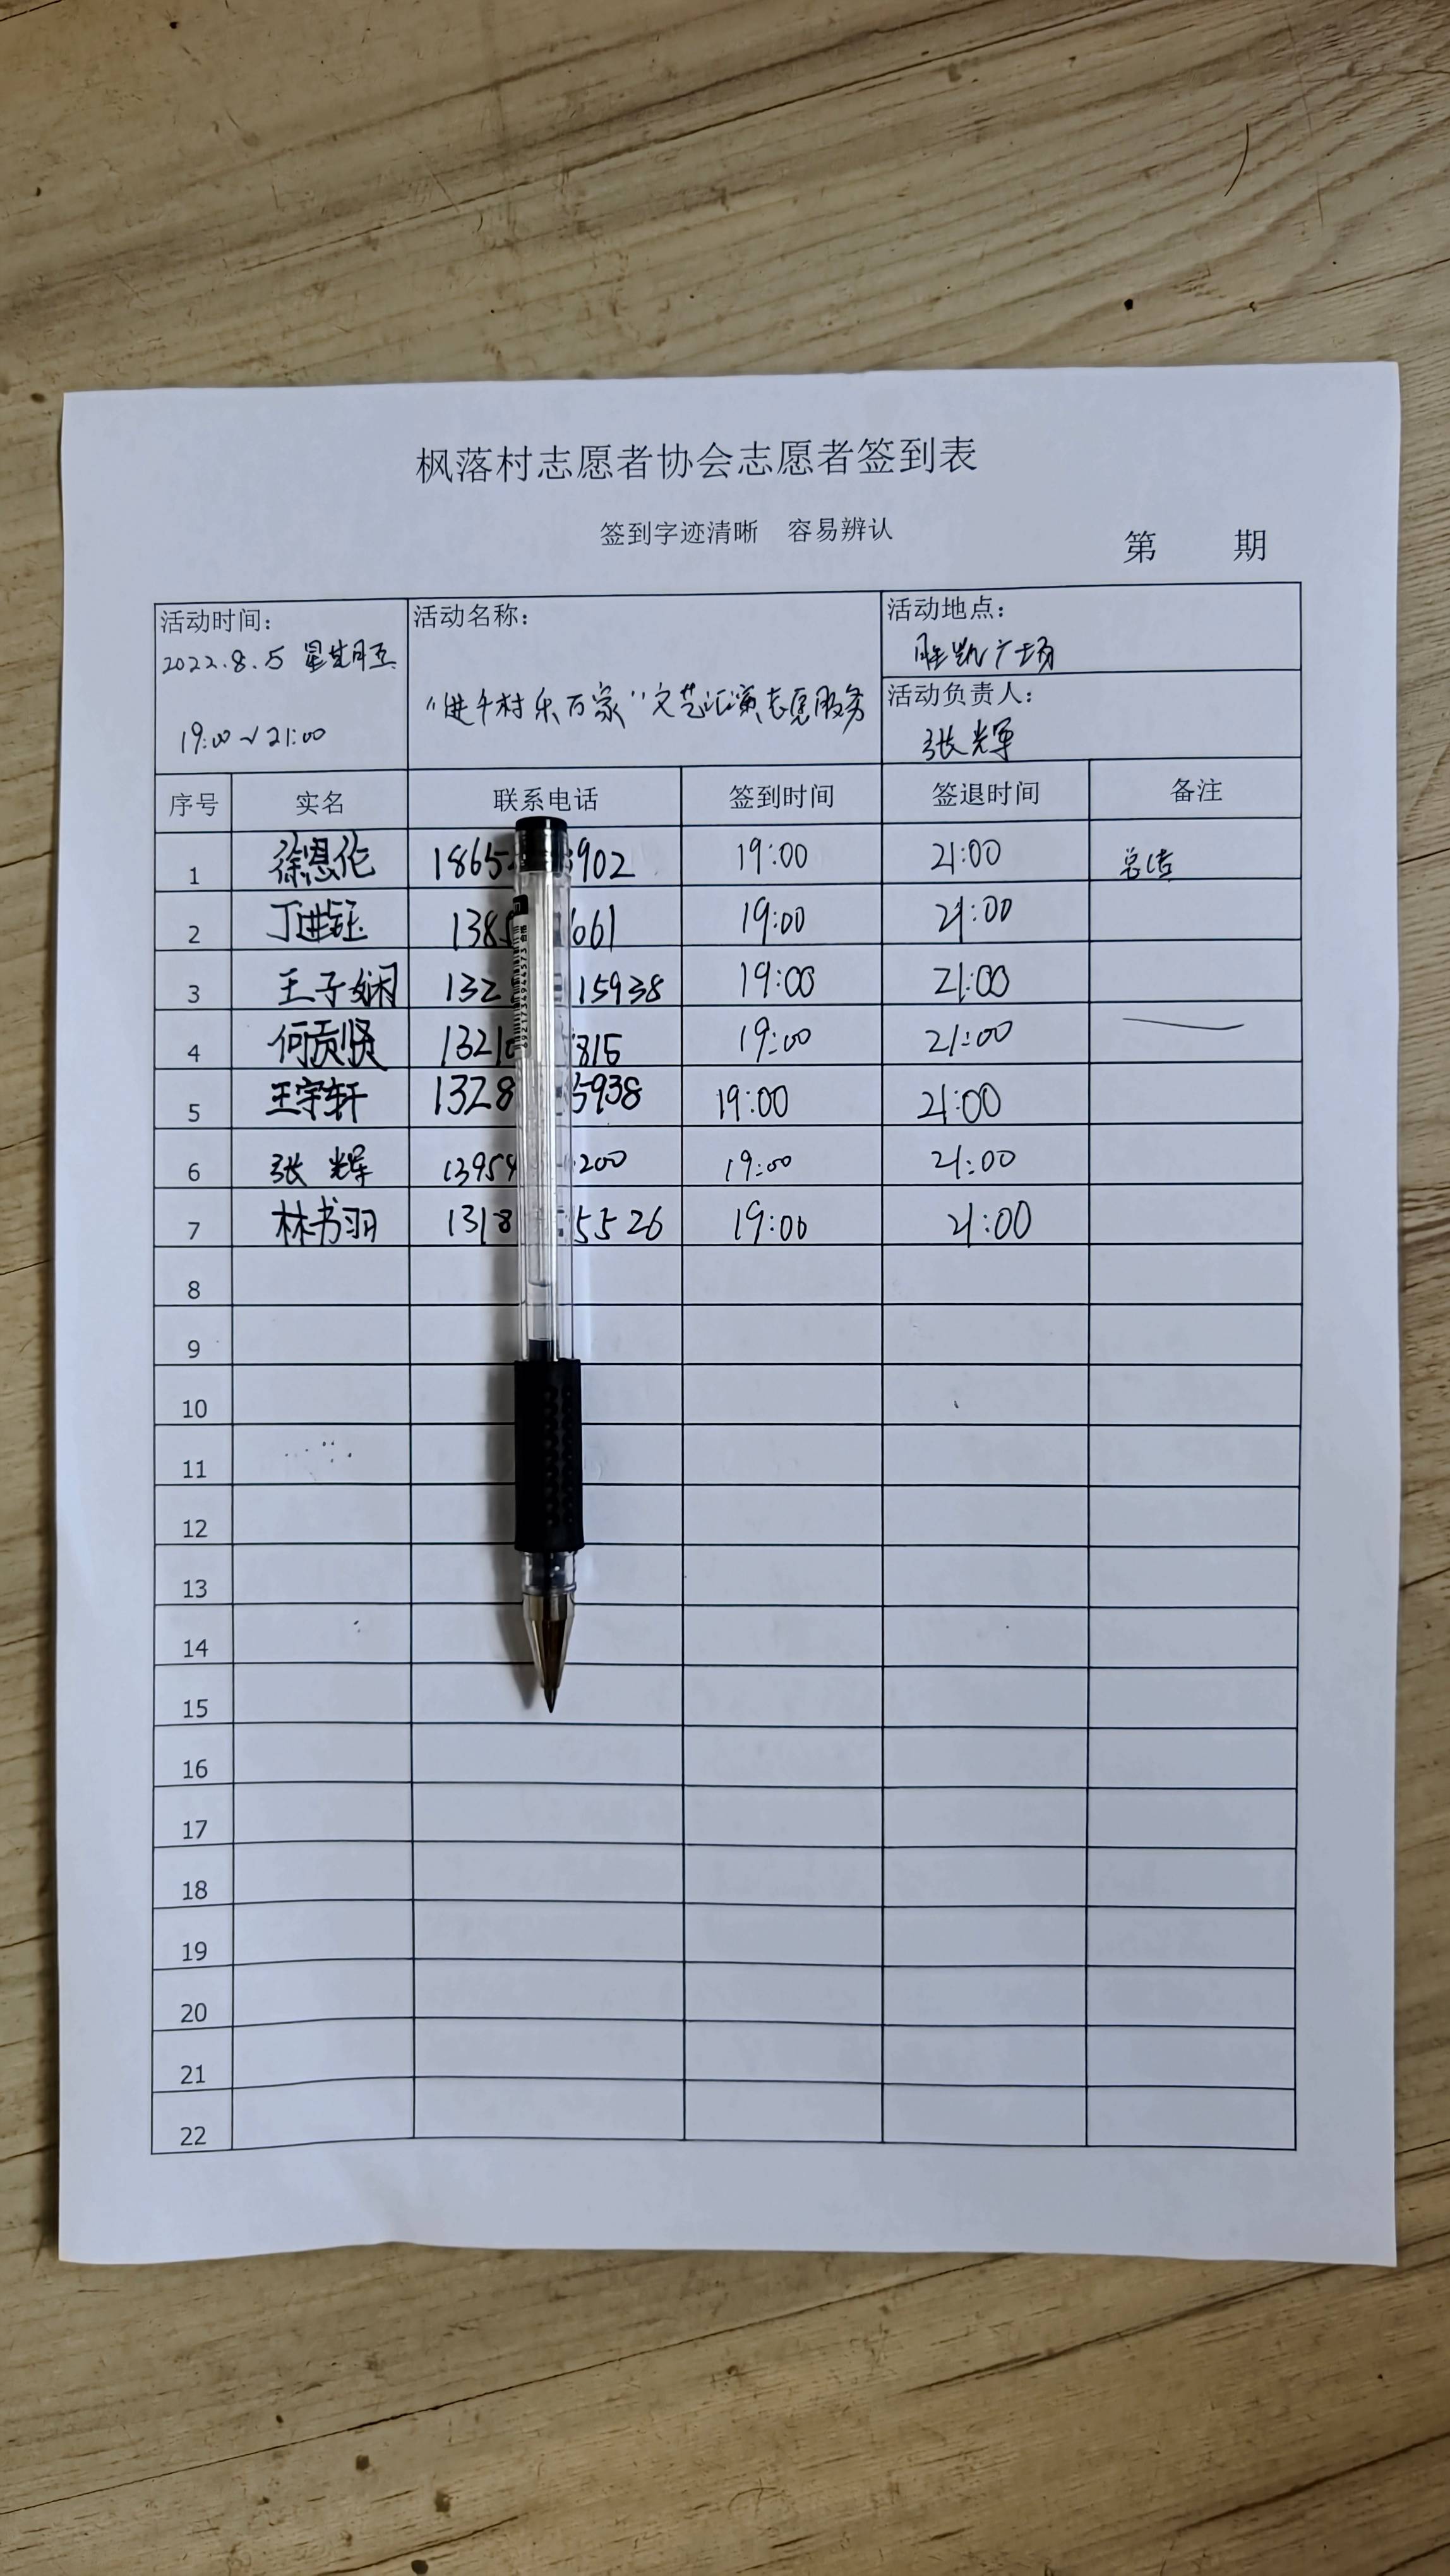 枫落村志愿者协会志愿者签到表
签到字迹清晰 容易辨认
第 期
活动时间: 活动名称: 活动地点:
2022.8.5 星期五 胜凯广场
“进千村乐百家”文艺汇演志愿服务 活动负责人:
19:00~21:00 张辉
序号 实名 联系电话 签到时间 签退时间 备注
1 徐恩伦 1865 902 19:00 21:00 总结
2 丁进钰 138 661 19:00 21:00
3 王子娴 132 15938 19:00 21:00
4 何贡贤 1321 815 19:00 21:00
5 王宇轩 1328 5938 19:00 21:00
6 张辉 1395 200 19:00 21:00
7 林书羽 1318 5526 19:00 21:00
8
9
10
11
12
13
14
15
16
17
18
19
20
21
22